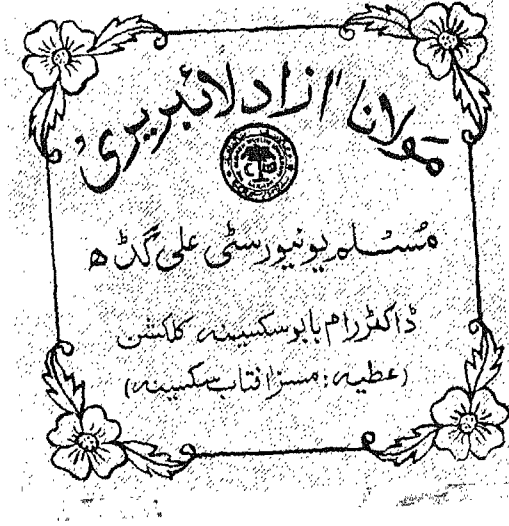 مولانا آزاد لائبریری
مسلم یونیورسٹی علی گڈھ
ڈاکٹر رام بابو سکسینہ کلکشن
(عطیہ: مسز افتاب سکسینہ)